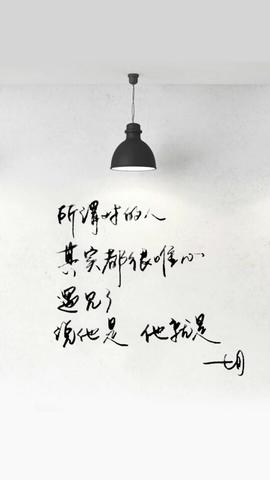 所谓对的人
其实都很唯心
遇见了
说他是 他就是
—七月